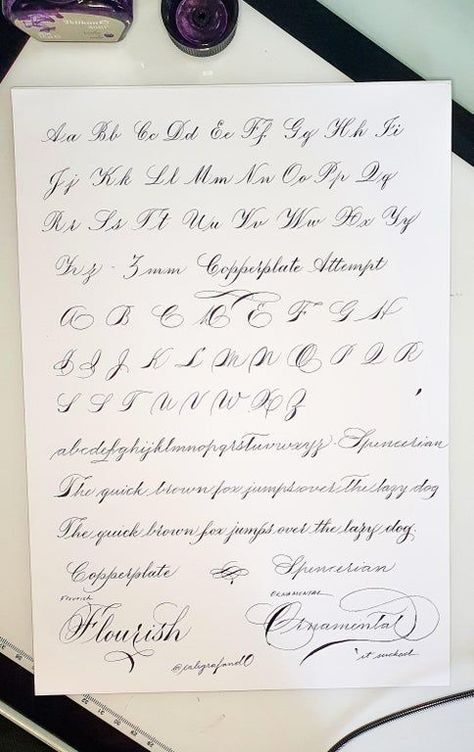 Pelikan
Aa Bb Cc Dd Ee Ff Gg Hh Ii
Jj Kk Ll Mm Nn Oo Pp Qq
Rr Ss Tt Uu Vv Ww Xx Yy
Zz z - 3mm Copperplate Attempt
A B C M E F G H
I J K L M N O P Q R
S S T U V W X Z
abcdefghijklmnopqrstuvwxyz - Spencerian
The quick brown fox jumps over the lazy dog
The quick brown fox jumps over the lazy dog.
Copperplate Spencerian
Flourish ORNAMENTAL
Flourish Ornamental
@caligrafando it sucked